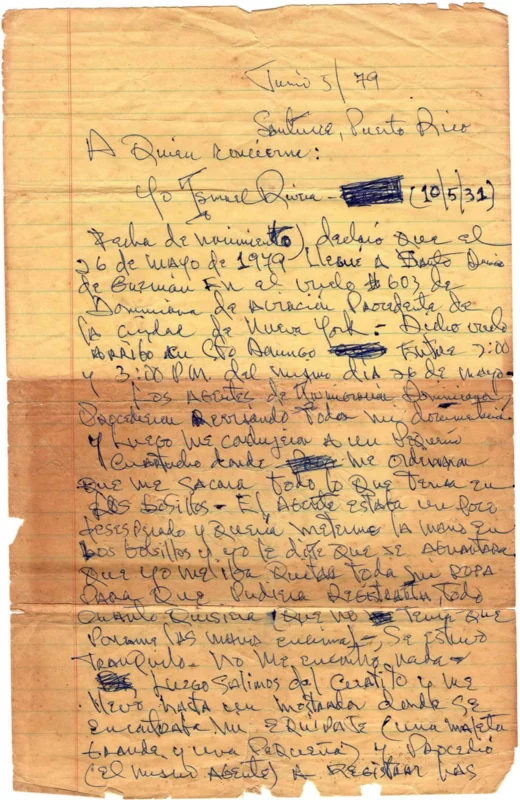 Junio 5/79
Santurce, Puerto Rico
A Quien concierne:
Yo Ismael Rivera - (10/5/31)
Fecha de nacimiento), declaro que el
26 de mayo de 1979 llegué A Santo Domingo
de Guzmán En el vuelo #603 de
Dominicana de Aviación Procedente de
la ciudad de Nueva York. - Dicho vuelo
Arribó en Sto Domingo Entre 2:00
y 3:00 P.M. del mismo día 26 de mayo -
Los Agentes de Dominicana
procedieron todos mis documentos
y luego me condujeron A un pequeño
cuartucho donde me ordenaron
que me sacara todo lo que tenía en
los bosillos - El Agente estaba un poco
desesperado y quería meterme la mano en
los bolsillos y yo le dije que se Aguantara
que yo me iba quitar toda mi ropa
para que pudiera registrar todo
cuanto quisiera (que no tenía que
ponerme las manos encima) -, se estuvo
tranquilo - No me encontró nada -
Luego salimos del cuartito y me
llevó hasta un mostrador donde se
encontraba mi equipaje (una maleta
grande y una pequeña) y procedió
(el mismo Agente) A registrar las